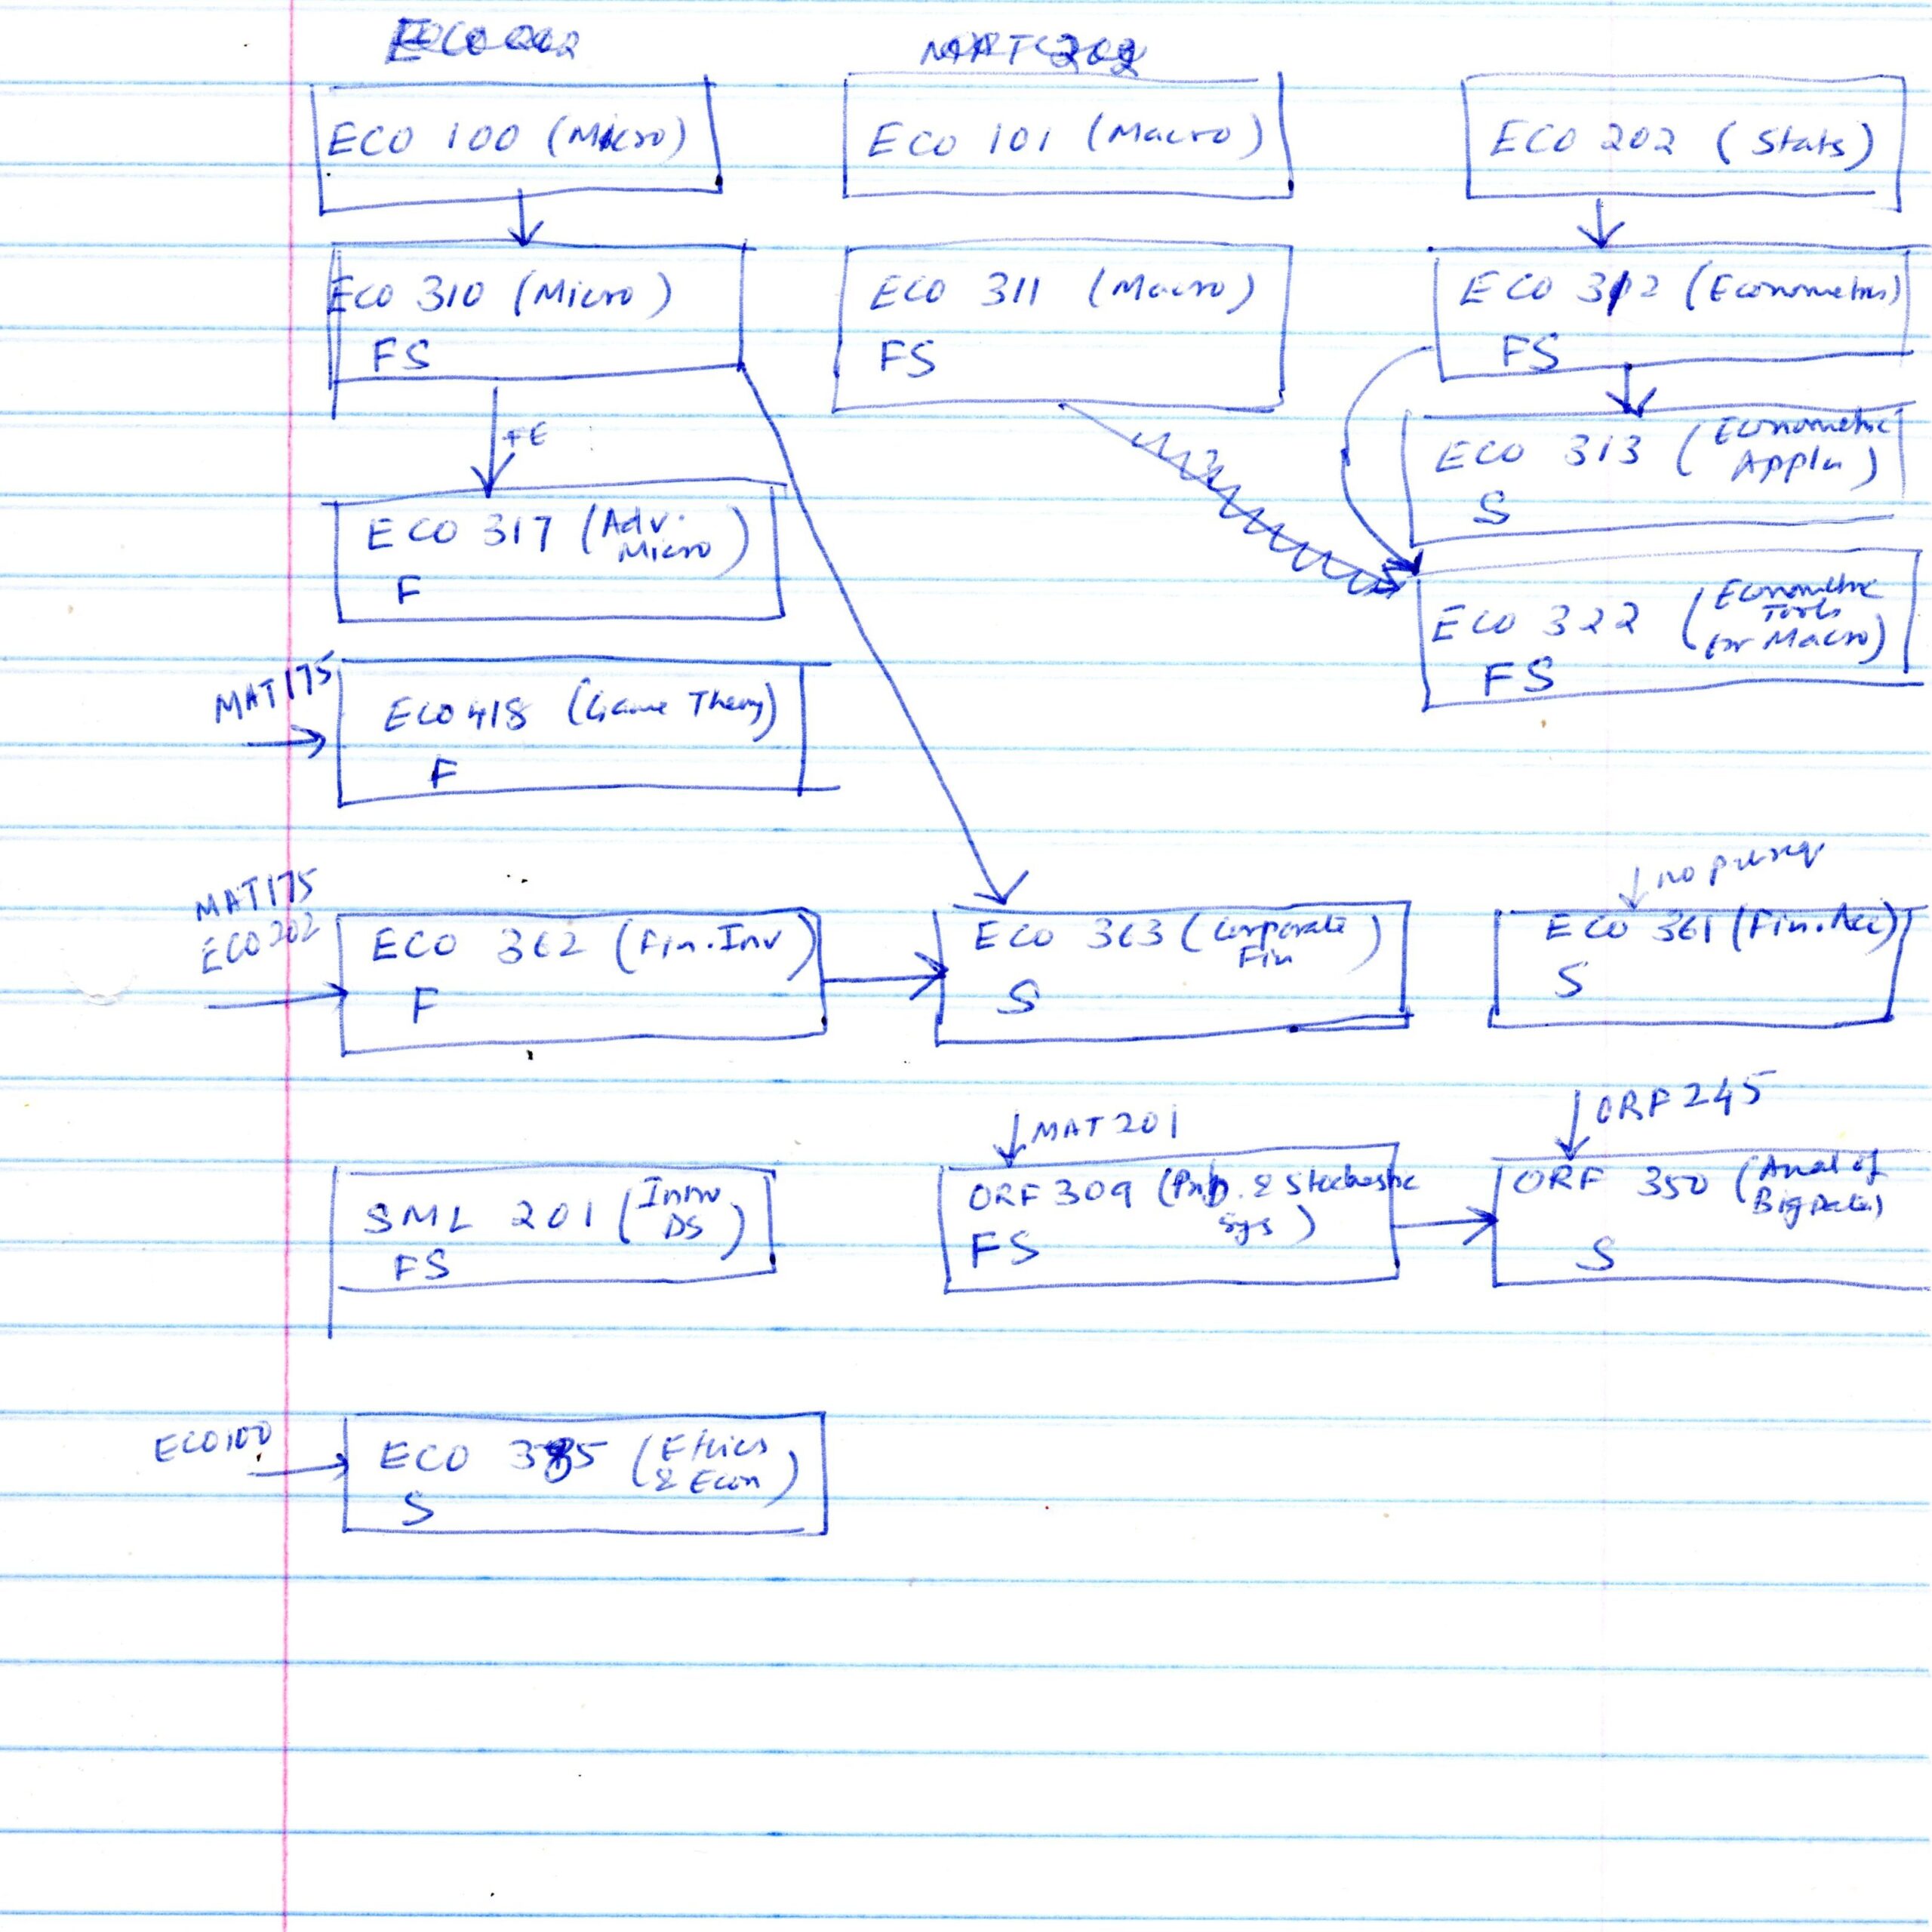 ECO 202
MAT 202
ECO 100 (Micro)
ECO 101 (Macro)
ECO 202 (Stats)
ECO 310 (Micro)
FS
ECO 311 (Macro)
FS
ECO 312 (Econometrics)
FS
ECO 313 (Econometric
Appln)
S
ECO 317 (Adv.
Micro)
F
ECO 322 (Econometric
Tools
for Macro)
FS
MAT175
ECO418 (Game Theory)
F
MAT175
ECO202
ECO 362 (Fin. Inv)
F
ECO 363 (Corporate
Fin)
S
no prereq
ECO 361 (Fin. Acc)
S
SML 201 (Intro
DS)
FS
MAT201
ORF 309 (Prob. & Stochastic
Sys)
FS
ORF 245
ORF 350 (Anal of
Big Data)
S
ECO100
ECO 385 (Ethics
& Econ)
S